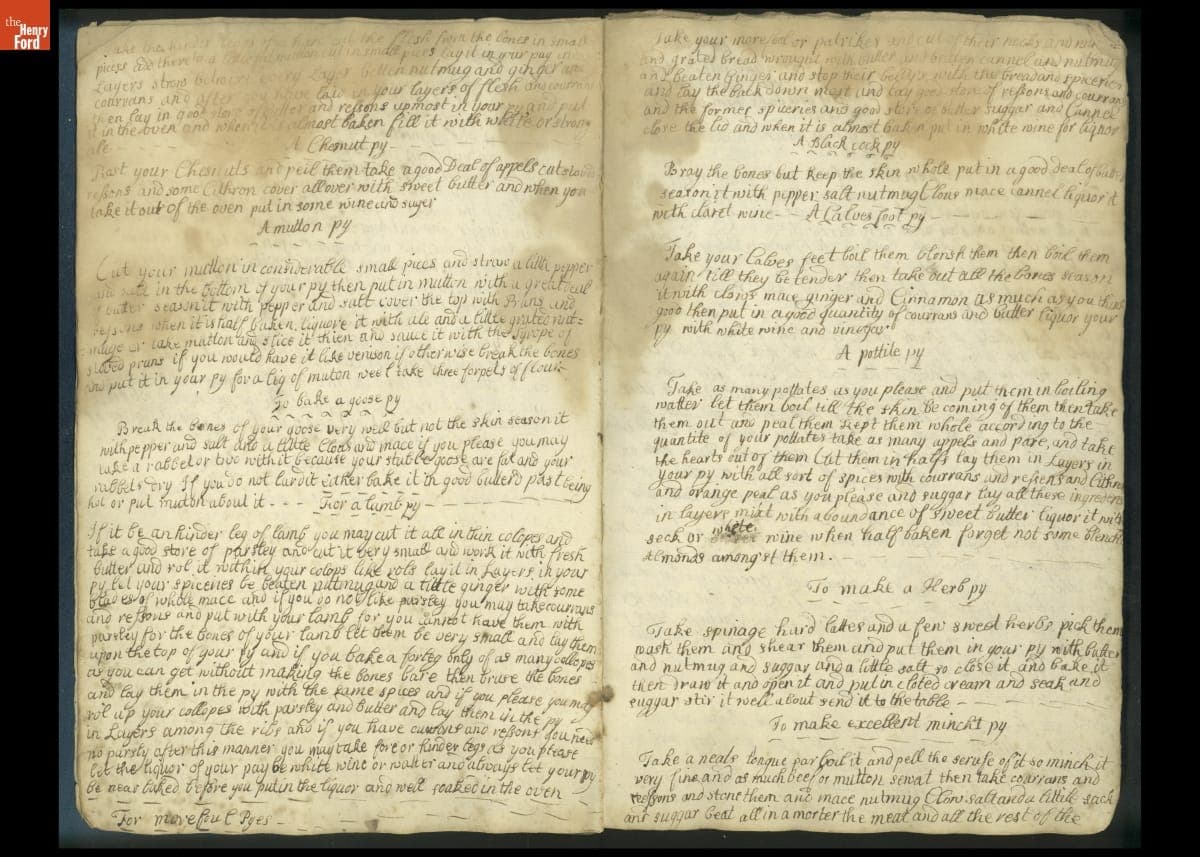 the
Henry
Ford
Take the hinder legs of a the flesh from the bones in small
pices add there to a little cut in small pices lay it in your py in
Layers strow betwixt every Layer betten nutmug and ginger and
courrans and after have laid in your layers of flesh and courrans
then lay in good store of butter and resons upmost in your py and put
it in the oven and when it is almost baken fill it with white or strong
ale
A Chesnut py
Rast your Chesnuts and peil them take a good Deal of appels cut
resons and some Cithron cover all over with sweet butter and when you
take it out of the oven put in some wine and suger
A mutton py
Cut your mutton in considerable small pices and straw a little pepper
and salt in the bottom of your py then put in mutton with a great deal
butter season it with pepper and salt cover the top with Pruns and
resons when it is half baken, liquore it with ale and a little grated nut=
muge or take mutton and slice it thien and sauce it with the Syrope of
stoved pruns if you would have it like venison if otherwise break the bones
and put it in your py for a leg of muton we'l take three forpets of flour
To bake a goose py
Break the bones of your goose very well but not the skin season it
with pepper and salt and a little Clous and mace if you please you may
take a rabbet or two with it because your stubble goose are fat and your
rabbets dry If you do not lard it either bake it in good butterd past being
hot or put muton about it - - - For a lamb py
If it be an hinder leg of lamb you may cut it all in thin colopes and
take a good store of parsley and cut it very small and work it with fresh
butter and rol it within your colops like rols lay it in Layers in your
py let your spiceries be beaten nutmug and a little ginger with some
blades of whole mace and if you do not like parsley you may take courrans
and resons and put with your lamb for you cannot have them with
parsley for the bones of your lamb let them be very small and lay them
upon the top of your py and if you bake a forleg only of as many collopes
as you can get without making the bones bare then bruse the bones
and lay them in the py with the same spices and if you please you may
rol up your collopes with parsley and butter and lay them in the py
in Layers among the ribs and if you have currans and resons you need
no parsly after this manner you may take fore or hinder legs as you please
let the liquor of your pay be white wine or watter and always let your py
be near baked before you put in the liquor and well soaked in the oven
For morefoul Pyes
Take your morefoul or patrikes and cut of their necks and
and grated bread wrought with butter and betten cannel and nutmug
and beaten Ginger and stop their bellys with the bread and spiceries
and lay the back down most and lay good store of resons and courrans
and the former spiceries and good store of butter suggar and Cannel
close the lid and when it is almost baken put in white wine for liquor
A black cock py
Bray the bones but keep the skin whole put in a good deal of butter
season it with pepper salt nutmug Clous mace cannel liquor it
with claret wine - - A Calves foot py
Take your Calves feet boil them blensh them then boil them
again till they be tender then take out all the bones season
it with clous mace ginger and Cinnamon as much as you think
good then put in a good quantity of courrans and butter liquor your
py with white wine and vinegar
A pottile py
Take as many pottates as you please and put them in boiling
watter let them boil till the skin be coming of them then take
them out and peal them kept them whole according to the
quantite of your pottates take as many appels and pare, and take
the hearts out of them Cut them in halfs lay them in Layers in
your py with all sort of spices with courrans and resiens and Cithron
and orange peal as you please and suggar lay all these ingredients
in layers mixt with aboundance of sweet butter liquor it with
seck or white wine when half baken forget not some blensht
almonds amongst them.
To make a Herb py
Take spinage hard lattes and a few sweet herbs pick them
wash them and shear them and put them in your py with butter
and nutmug and suggar and a little salt so close it and bake it
then draw it and open it and put in cloted cream and seck and
suggar stir it well about send it to the table
To make excellent mincht py
Take a neats tongue parboil it and pell the scruse of it so minch it
very fine and as much beef or mutton sewat then take courrans and
reesons and stone them and mace nutmug Clow salt and a littile sack
and suggar beat all in a morter the meat and all the rest of the